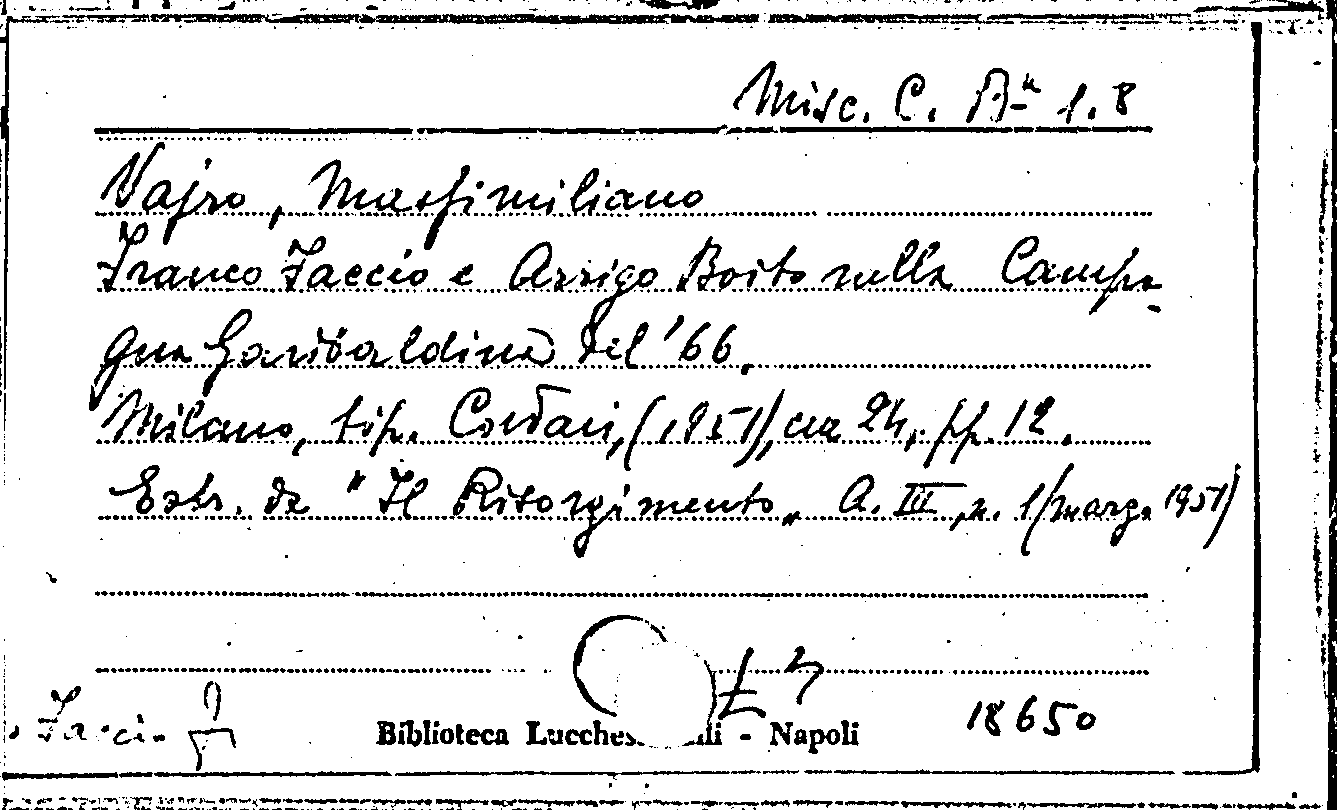 Misc. C. Bª 1.8
Vajro, Massimiliano
Franco Faccio e Arrigo Boito nella Campa-
gna Garibaldina del '66.
Milano, tip. Cordani, (1951), cm 24, pp. 12.
Estr. da "Il Risorgimento„ A. III, n. 1 (marzo 1951)
Biblioteca Lucches. lli - Napoli
18650